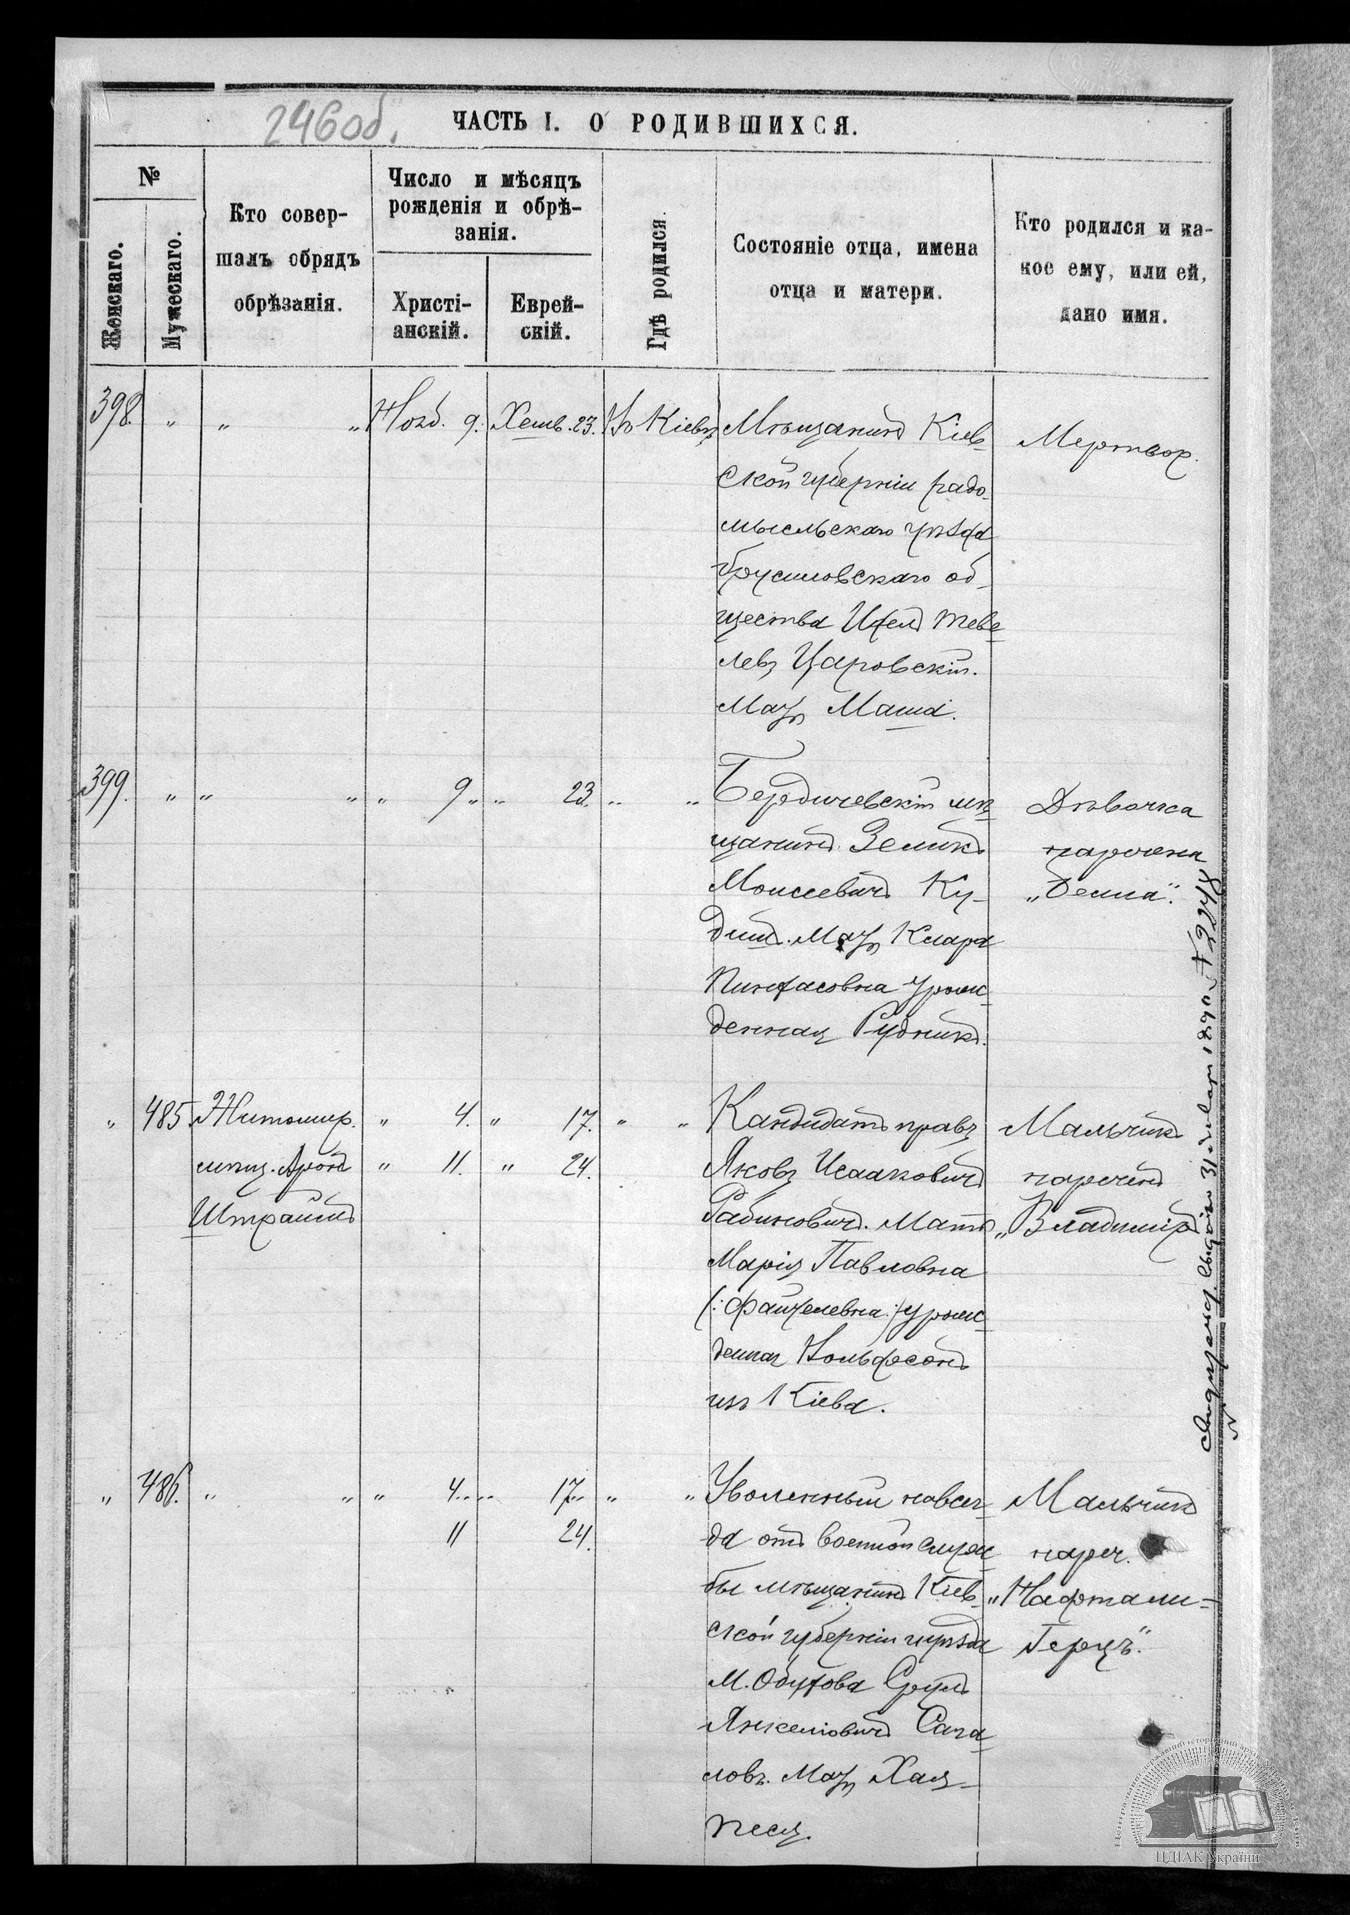 246 об.
ЧАСТЬ I. О РОДИВШИХСЯ.
№
Женскаго.
Мужескаго.
Кто совер-
шалъ обрядъ
обрѣзанія.
Число и мѣсяцъ
рожденія и обрѣ-
занія.
Христі-
анскій.
Еврей-
скій.
Гдѣ родился.
Состояніе отца, имена
отца и матери.
Кто родился и ка-
кое ему, или ей,
дано имя.
398. " " " Нояб. 9. Хешв. 23. Въ Кіевѣ
Мѣщанинъ Кіев-
ской губерніи радо-
мысльскаго уѣзда
брусиловскаго об-
щества Ицелъ Теве-
левъ Царовскій.
Мать Маша.
Мертвор.
399. " " " " 9 " " 23. " "
Бердичевскій мѣ-
щанинъ Зеликъ
Моисеевичъ Ку-
дишъ. Мать Клара
Пинхасовна урож-
денная Рудникъ.
Дѣвочка
наречена
„Бейла".
" 485 Житомир. " 4. " 17. " "
мѣщ. Аронъ " 11. " 24.
Штрайшъ
Кандидатъ правъ
Яковъ Исааковичъ
Рабиновичъ. Мать
Марія Павловна
(: Файтелевна :) урож-
денная Вольфсонъ
изъ Кіева.
Мальчикъ
нареченъ
„Владиміръ
" 486. " " " 4. " " 17. " " "
11 24.
Уволенный навсег-
да отъ военной служ-
бы мѣщанинъ Кіев-
ской губерніи и уѣзда
М. Обухова Сруль
Янкеліовичъ Сага-
ловъ. Мать Хая-
Песя.
Мальчикъ
нареч.
„Нафтали-
Герцъ".
31 января 1890 № 2248
ЦДІАК України